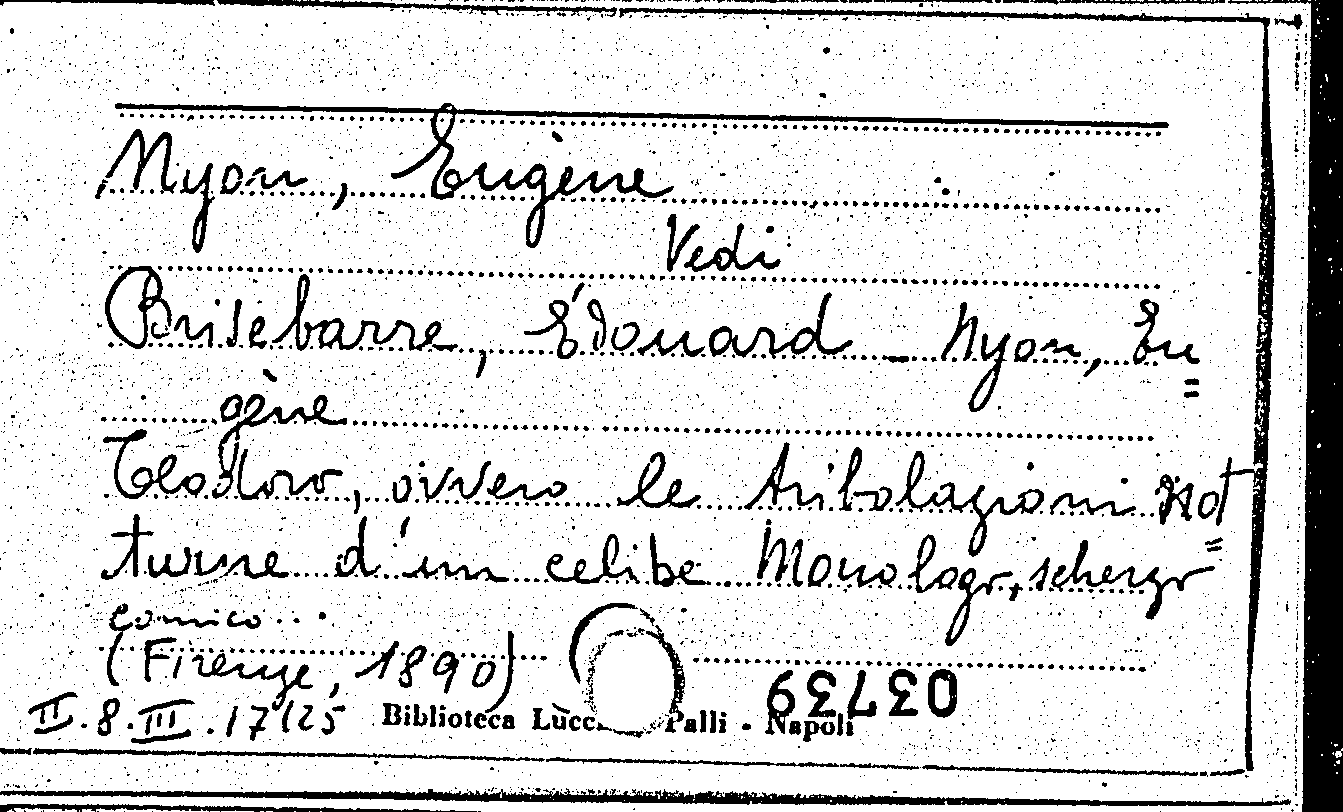 Nyon, Eugène
Vedi
Brisebarre, Édouard - Nyon, Eu=
gène
Teodoro, ovvero le tribolazioni not=
turne d'un celibe Monologo, scherzo
comico...
(Firenze, 1890)
03739
II.8.III.17(25
Biblioteca Lucc Palli - Napoli